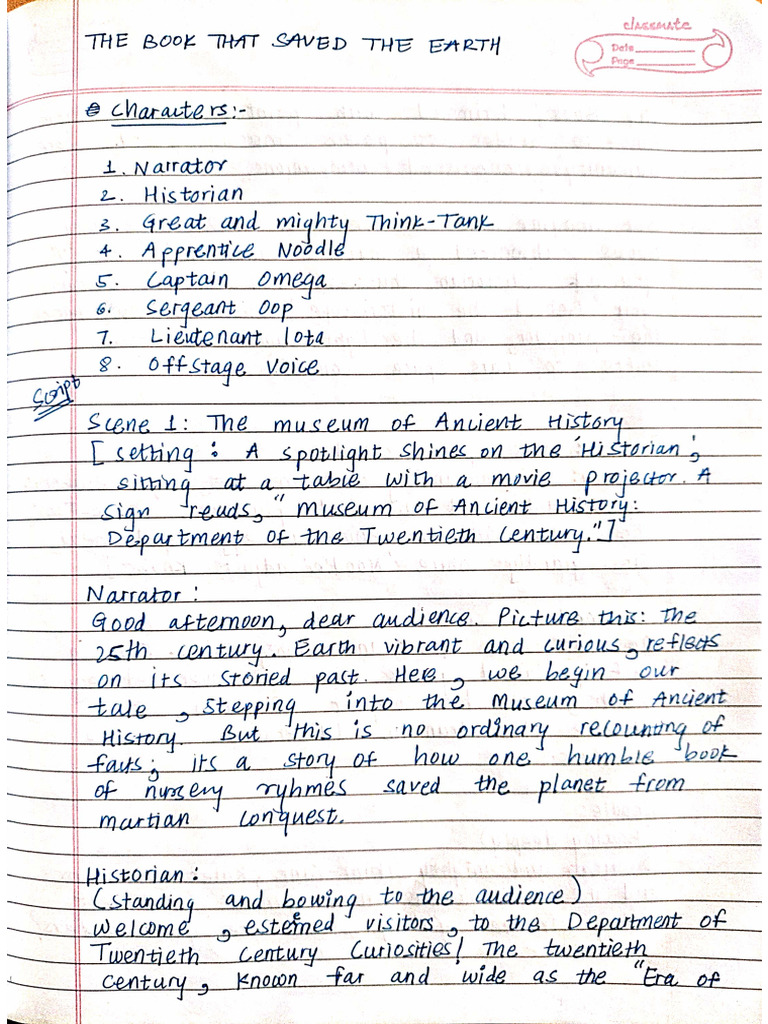 classmate
Date
Page
THE BOOK THAT SAVED THE EARTH
Characters:-
1. Narrator
2. Historian
3. Great and mighty Think-Tank
4. Apprentice Noodle
5. Captain Omega
6. Sergeant Oop
7. Lieutenant Iota
8. Offstage Voice
Script
Scene 1: The museum of Ancient History
[setting: A spotlight shines on the 'Historian',
sitting at a table with a movie projector. A
sign reads, "Museum of Ancient History:
Department of the Twentieth Century."]
Narrator:
Good afternoon, dear audience. Picture this: The
25th century. Earth vibrant and curious, reflects
on its storied past. Here, we begin our
tale, stepping into the Museum of Ancient
History. But this is no ordinary recounting of
facts; its a story of how one humble book
of nursery ryhmes saved the planet from
martian conquest.
Historian:
(standing and bowing to the audience)
Welcome, esteined visitors, to the Department of
Twentieth Century Curiosities! The twentieth
century, known far and wide as the "Era of